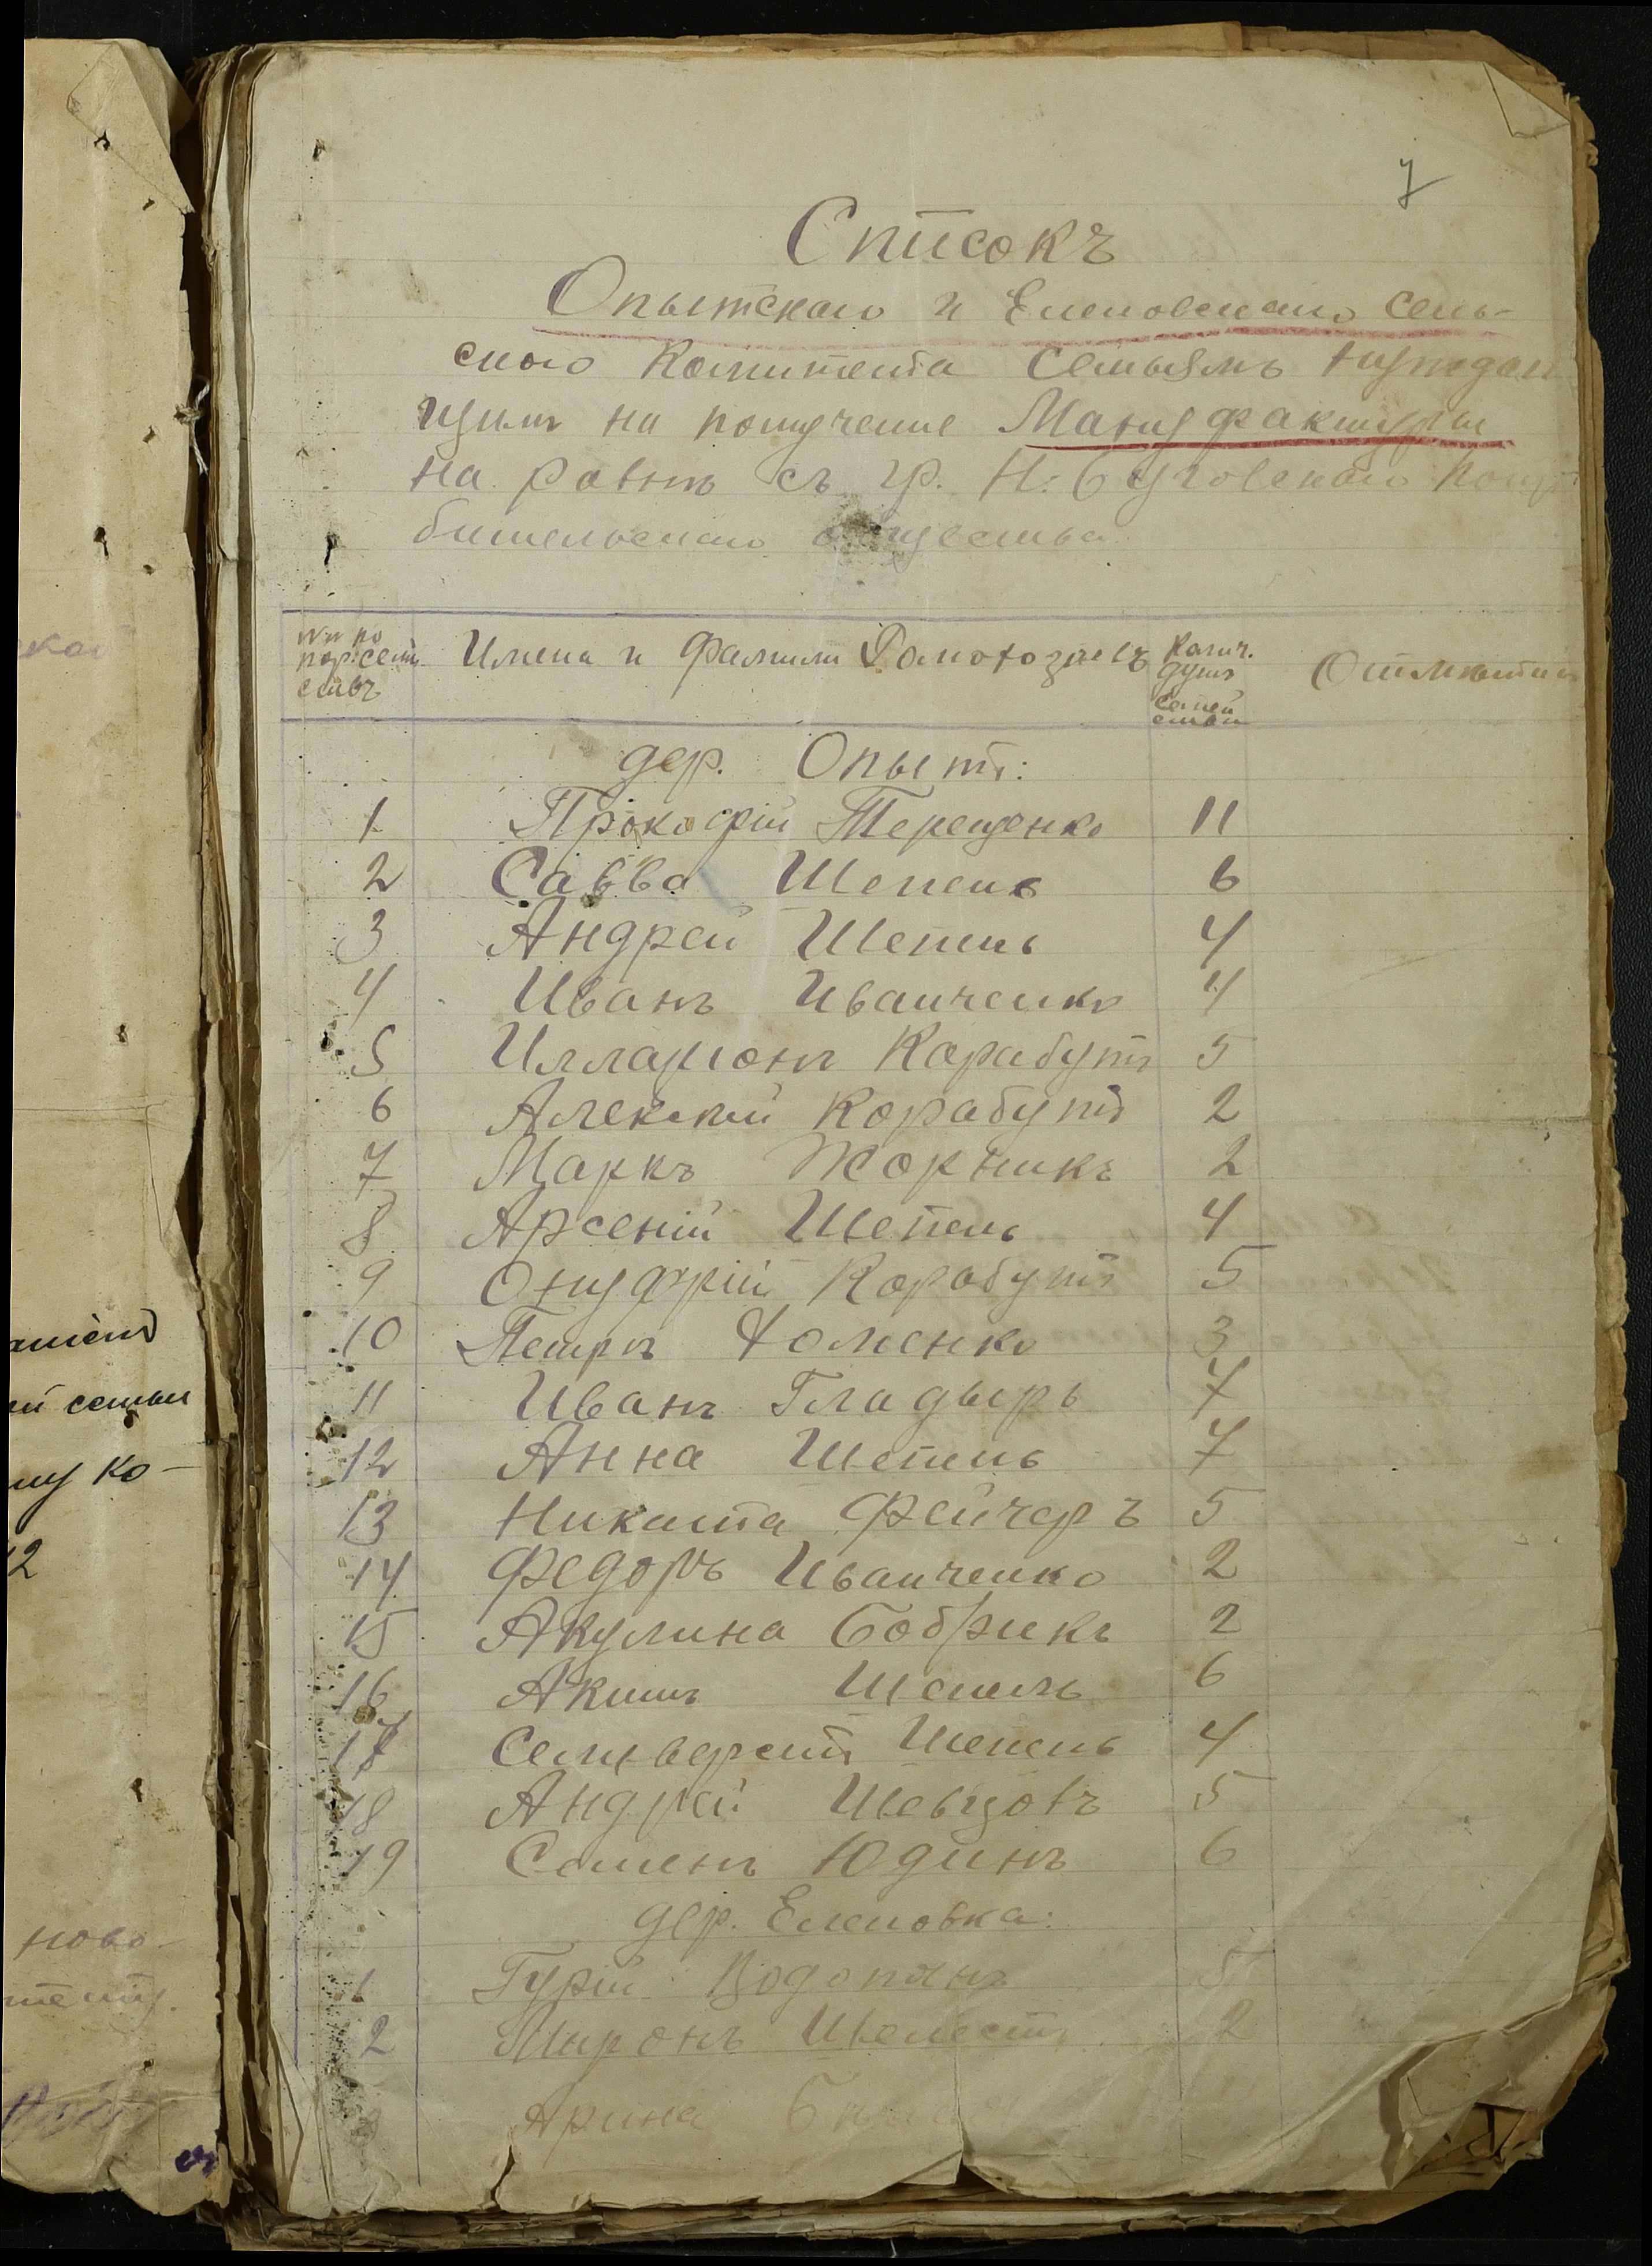 7
Списокъ
Опытскаго и Еленовскаго сель-
скаго Комитета семьямъ нуждаю
щимъ на получение Мануфактуры
на равнѣ съ гр. Н: Буговскаго
бительскаго общества
№№ по пор: семействъ
Имена и Фамили Домохозяевъ
Колич. душъ семейства
Отмѣтки
дер. Опытъ:
1 Прокофій Терещенко 11
2 Савва Шепель 6
3 Андрей Шепель 4
4 Иванъ Иванченко 4
5 Илларионъ Карабутъ 5
6 Алексѣй Корабутъ 2
7 Маркъ Жорникъ 2
8 Арсеній Шепель 4
9 Онуфрій Корабутъ 5
10 Петръ Хоменко 3
11 Иванъ Гладырь 7
12 Анна Шепель 7
13 Никита Фейчеръ 5
14 Федоръ Иванченко 2
15 Акулина Бобрикъ 2
16 Акимъ Шепель 6
17 Селиверстъ Шепель 4
18 Андрей Шевцовъ 5
19 Семенъ Юдинъ 6
дер. Еленовка:
1 Гурій Водопянъ 5
2 Миронъ Шелестъ 2
Арина
ей семьи
му ко-
12
ново-